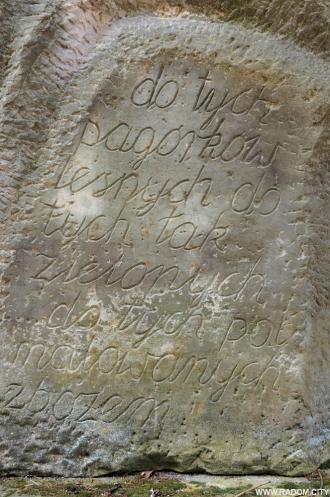 do tych
pagórków
leśnych do
tych łąk
zielonych
do tych pól
malowanych
zbożem
WWW.RADOM.CITY